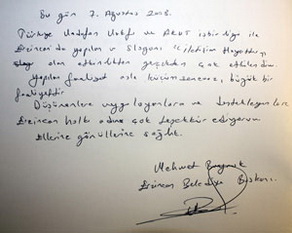 Bu gün 7. Ağustos 2008.
Türkiye Vodafon Vakfı ve AKUT işbirliği ile
Erzincan'da yapılan ve Sloganı "İletişim Hayattır
olan etkinlikten gerçekten çok etkilendim.
yapılan faaliyet asla küçümsenemez, büyük bir
faaliyettir
Düşünenlere uygulayanlara ve destekleyenlere
Erzincan halkı adına çok teşekkür ediyorum
Ellerine gönüllerine sağlık.
Mehmet
Erzincan Belediye Başkanı